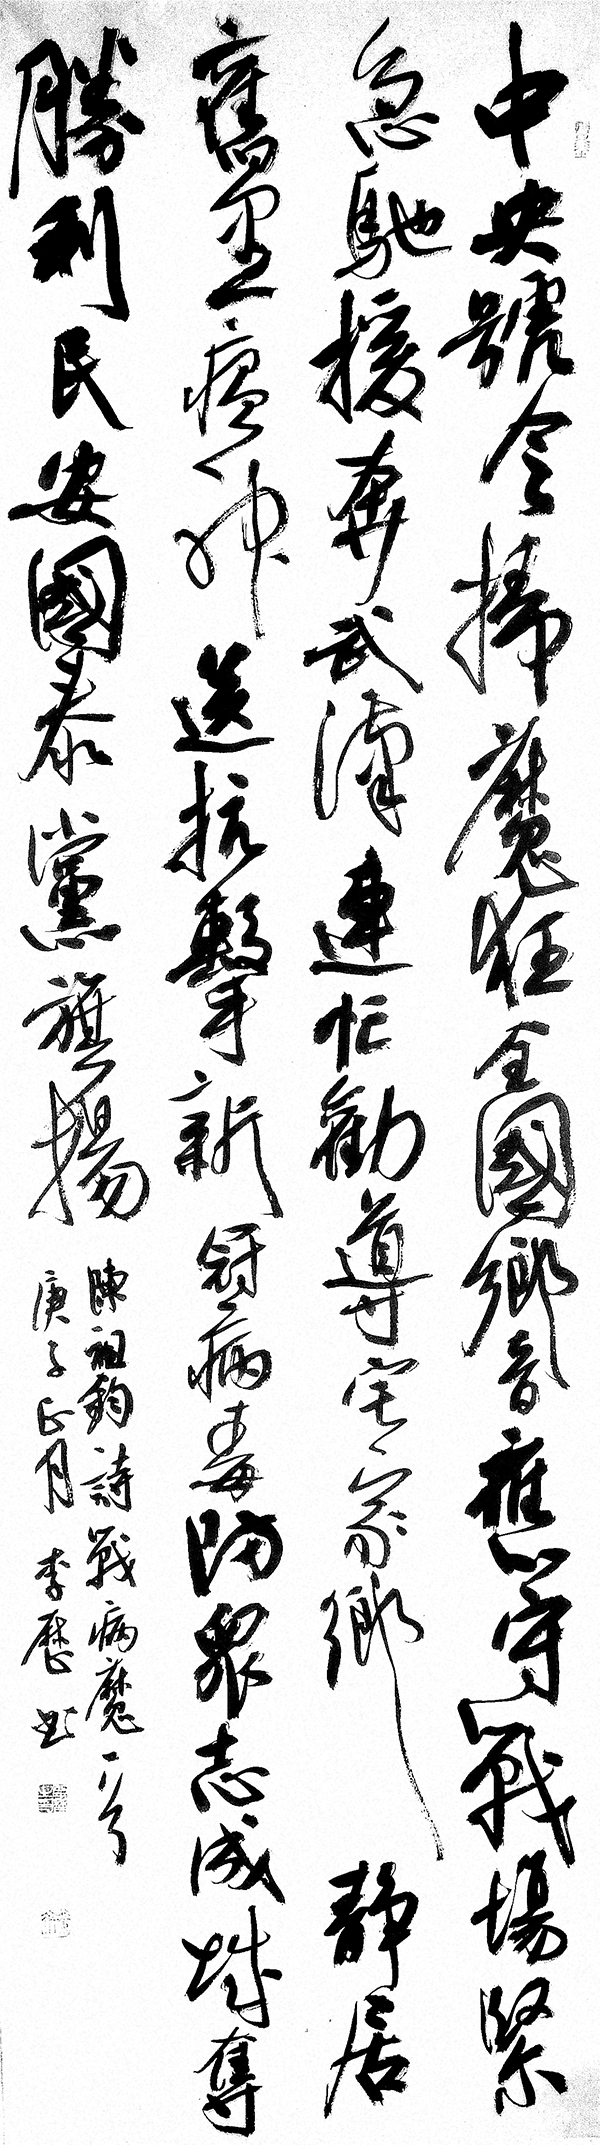 中央號令掃魔狂全國鄉音應守戰場緊
急馳援奔武漢連忙勸導宅家鄉靜居
舊歷瘟神送抗擊新冠病毒防眾志成城奪
勝利民安國泰黨旗揚
陳祖鈞詩戰病魔一首
庚子正月李歷書